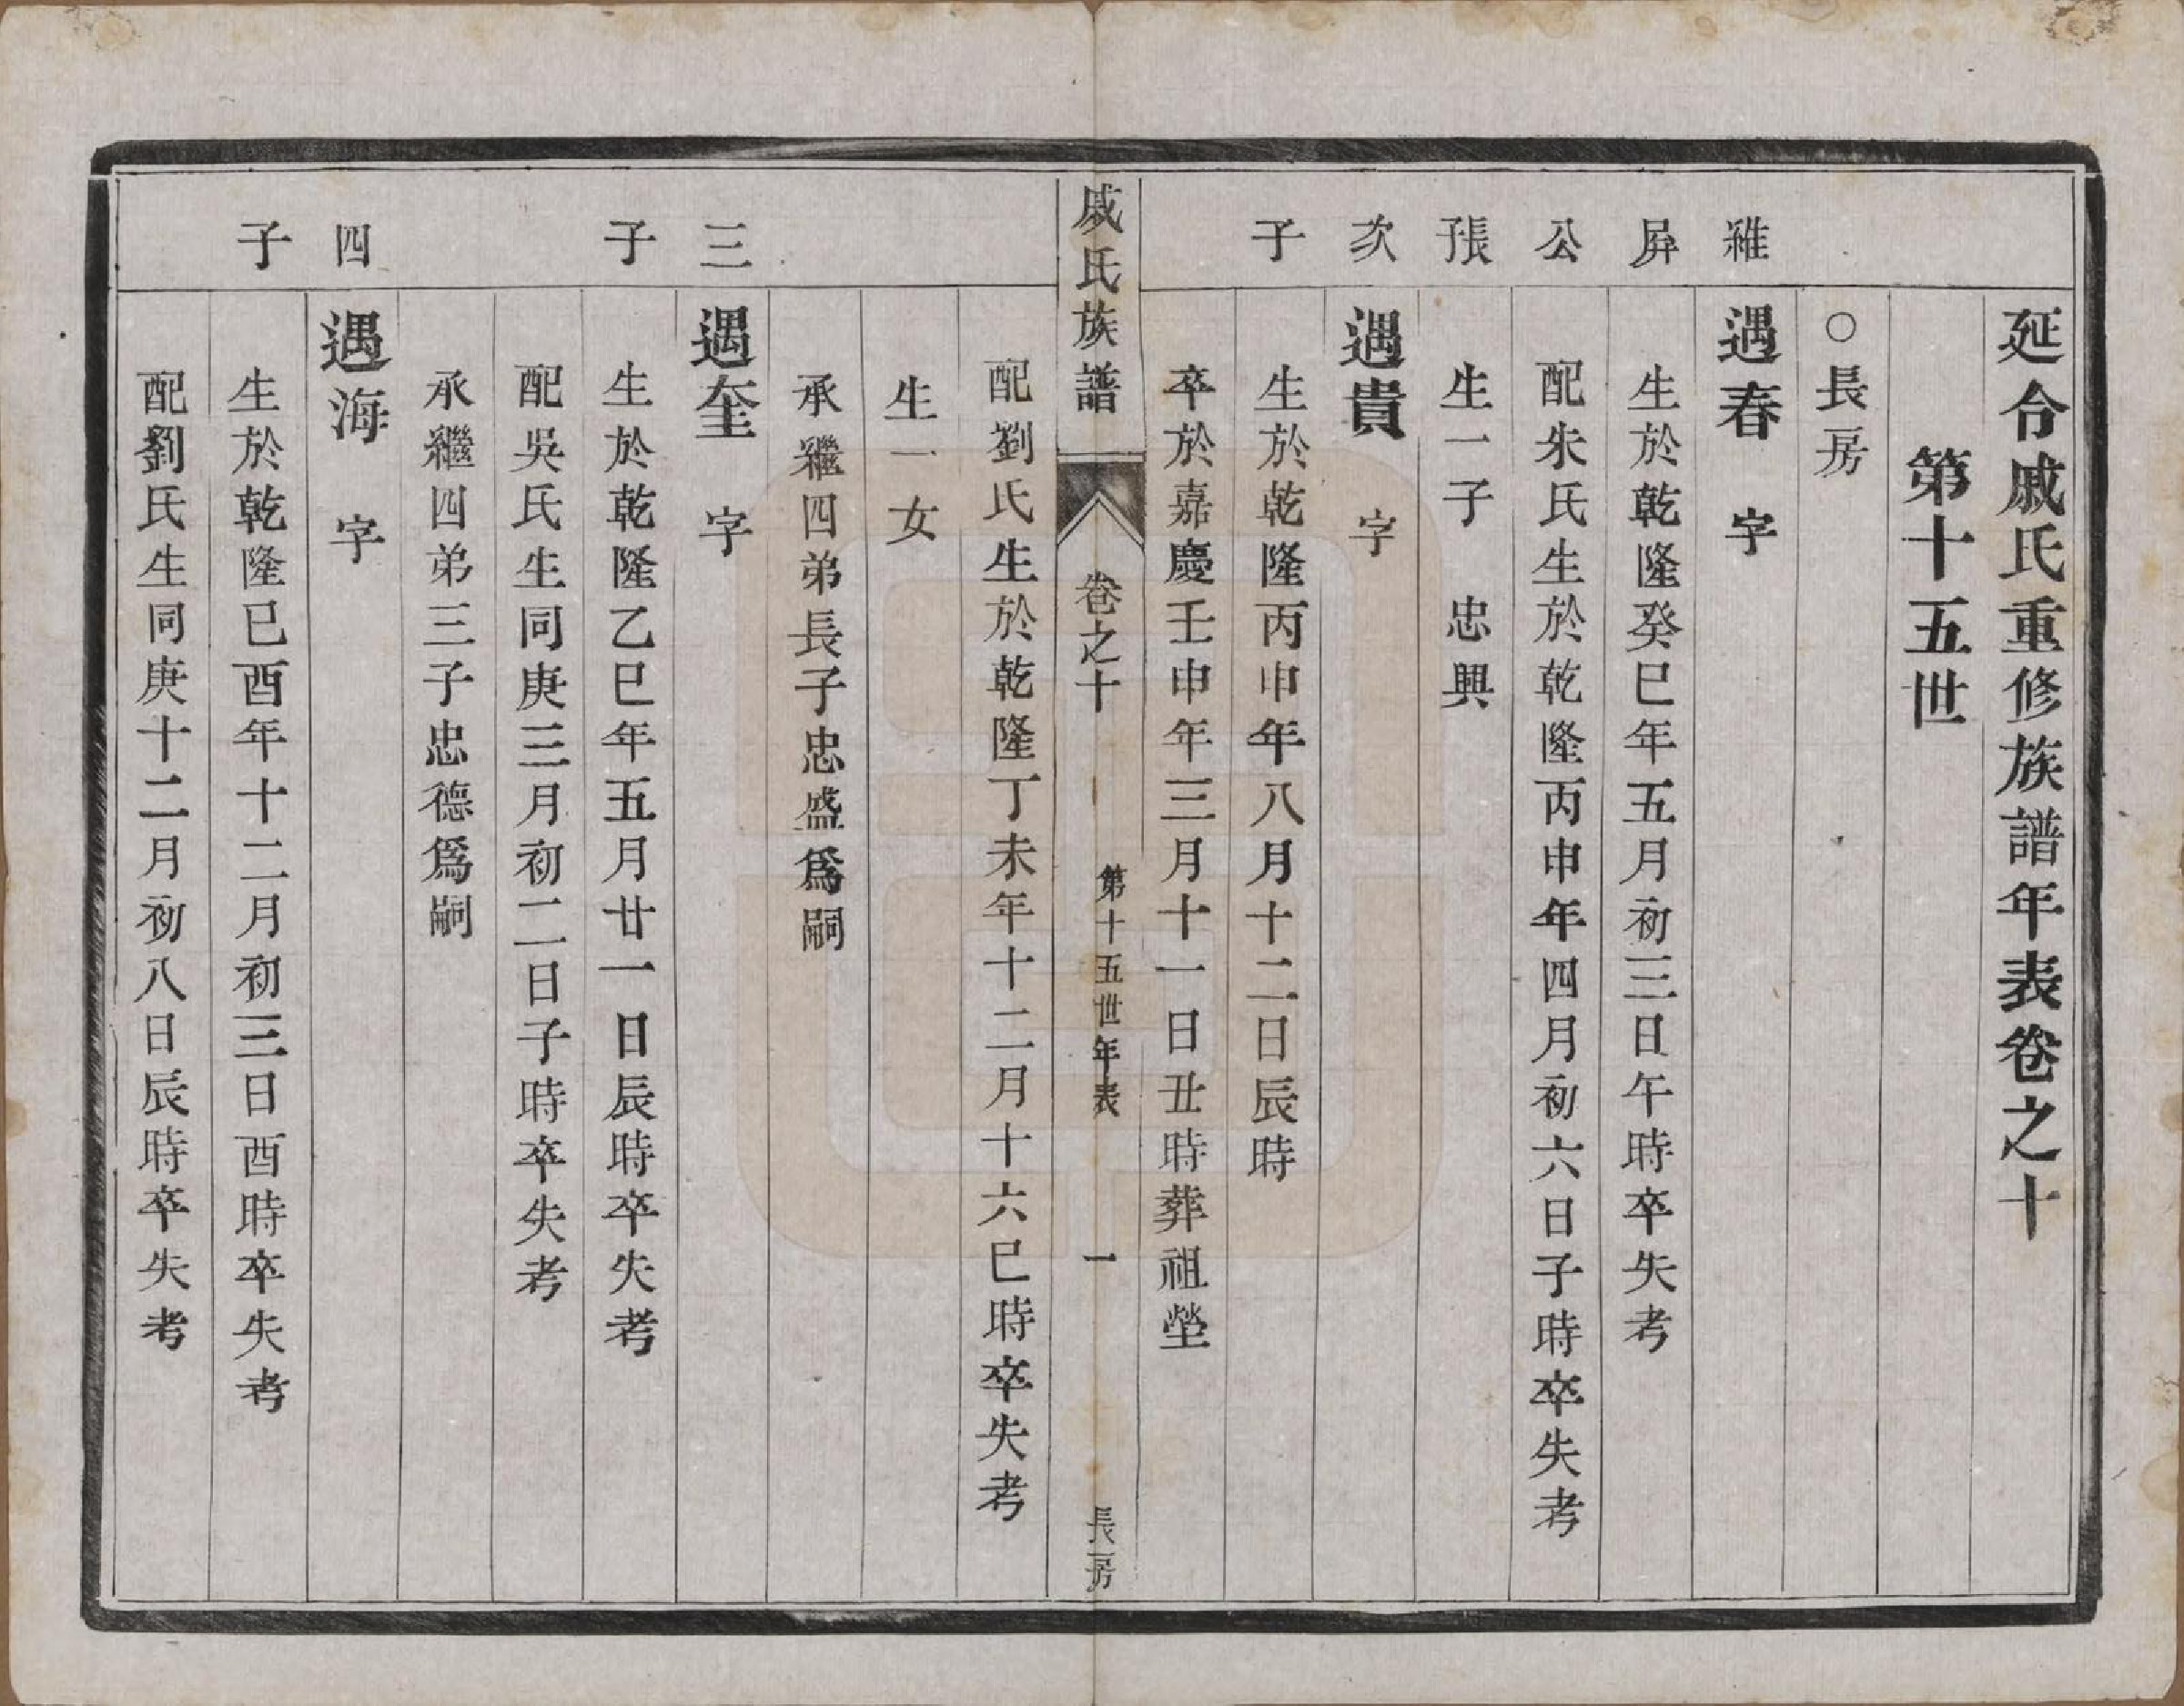 延令戚氏重修族譜年表卷之十
第十五世
○長房
屏公長子
遇春 字
生於乾隆癸巳年五月初三日午時卒失考
配朱氏生於乾隆丙申年四月初六日子時卒失考
生一子 忠興
次子
遇貴 字
生於乾隆丙申年八月十二日辰時
卒於嘉慶壬申年三月十一日丑時葬祖塋
戚氏族譜 卷之十 第十五世年表 一 長房
配劉氏生於乾隆丁未年十二月十六巳時卒失考
生一女
承繼四弟長子忠盛爲嗣
三子
遇奎 字
生於乾隆乙巳年五月廿一日辰時卒失考
配吳氏生同庚三月初二日子時卒失考
承繼四弟三子忠德爲嗣
四子
遇海 字
生於乾隆己酉年十二月初三日酉時卒失考
配劉氏生同庚十二月初八日辰時卒失考